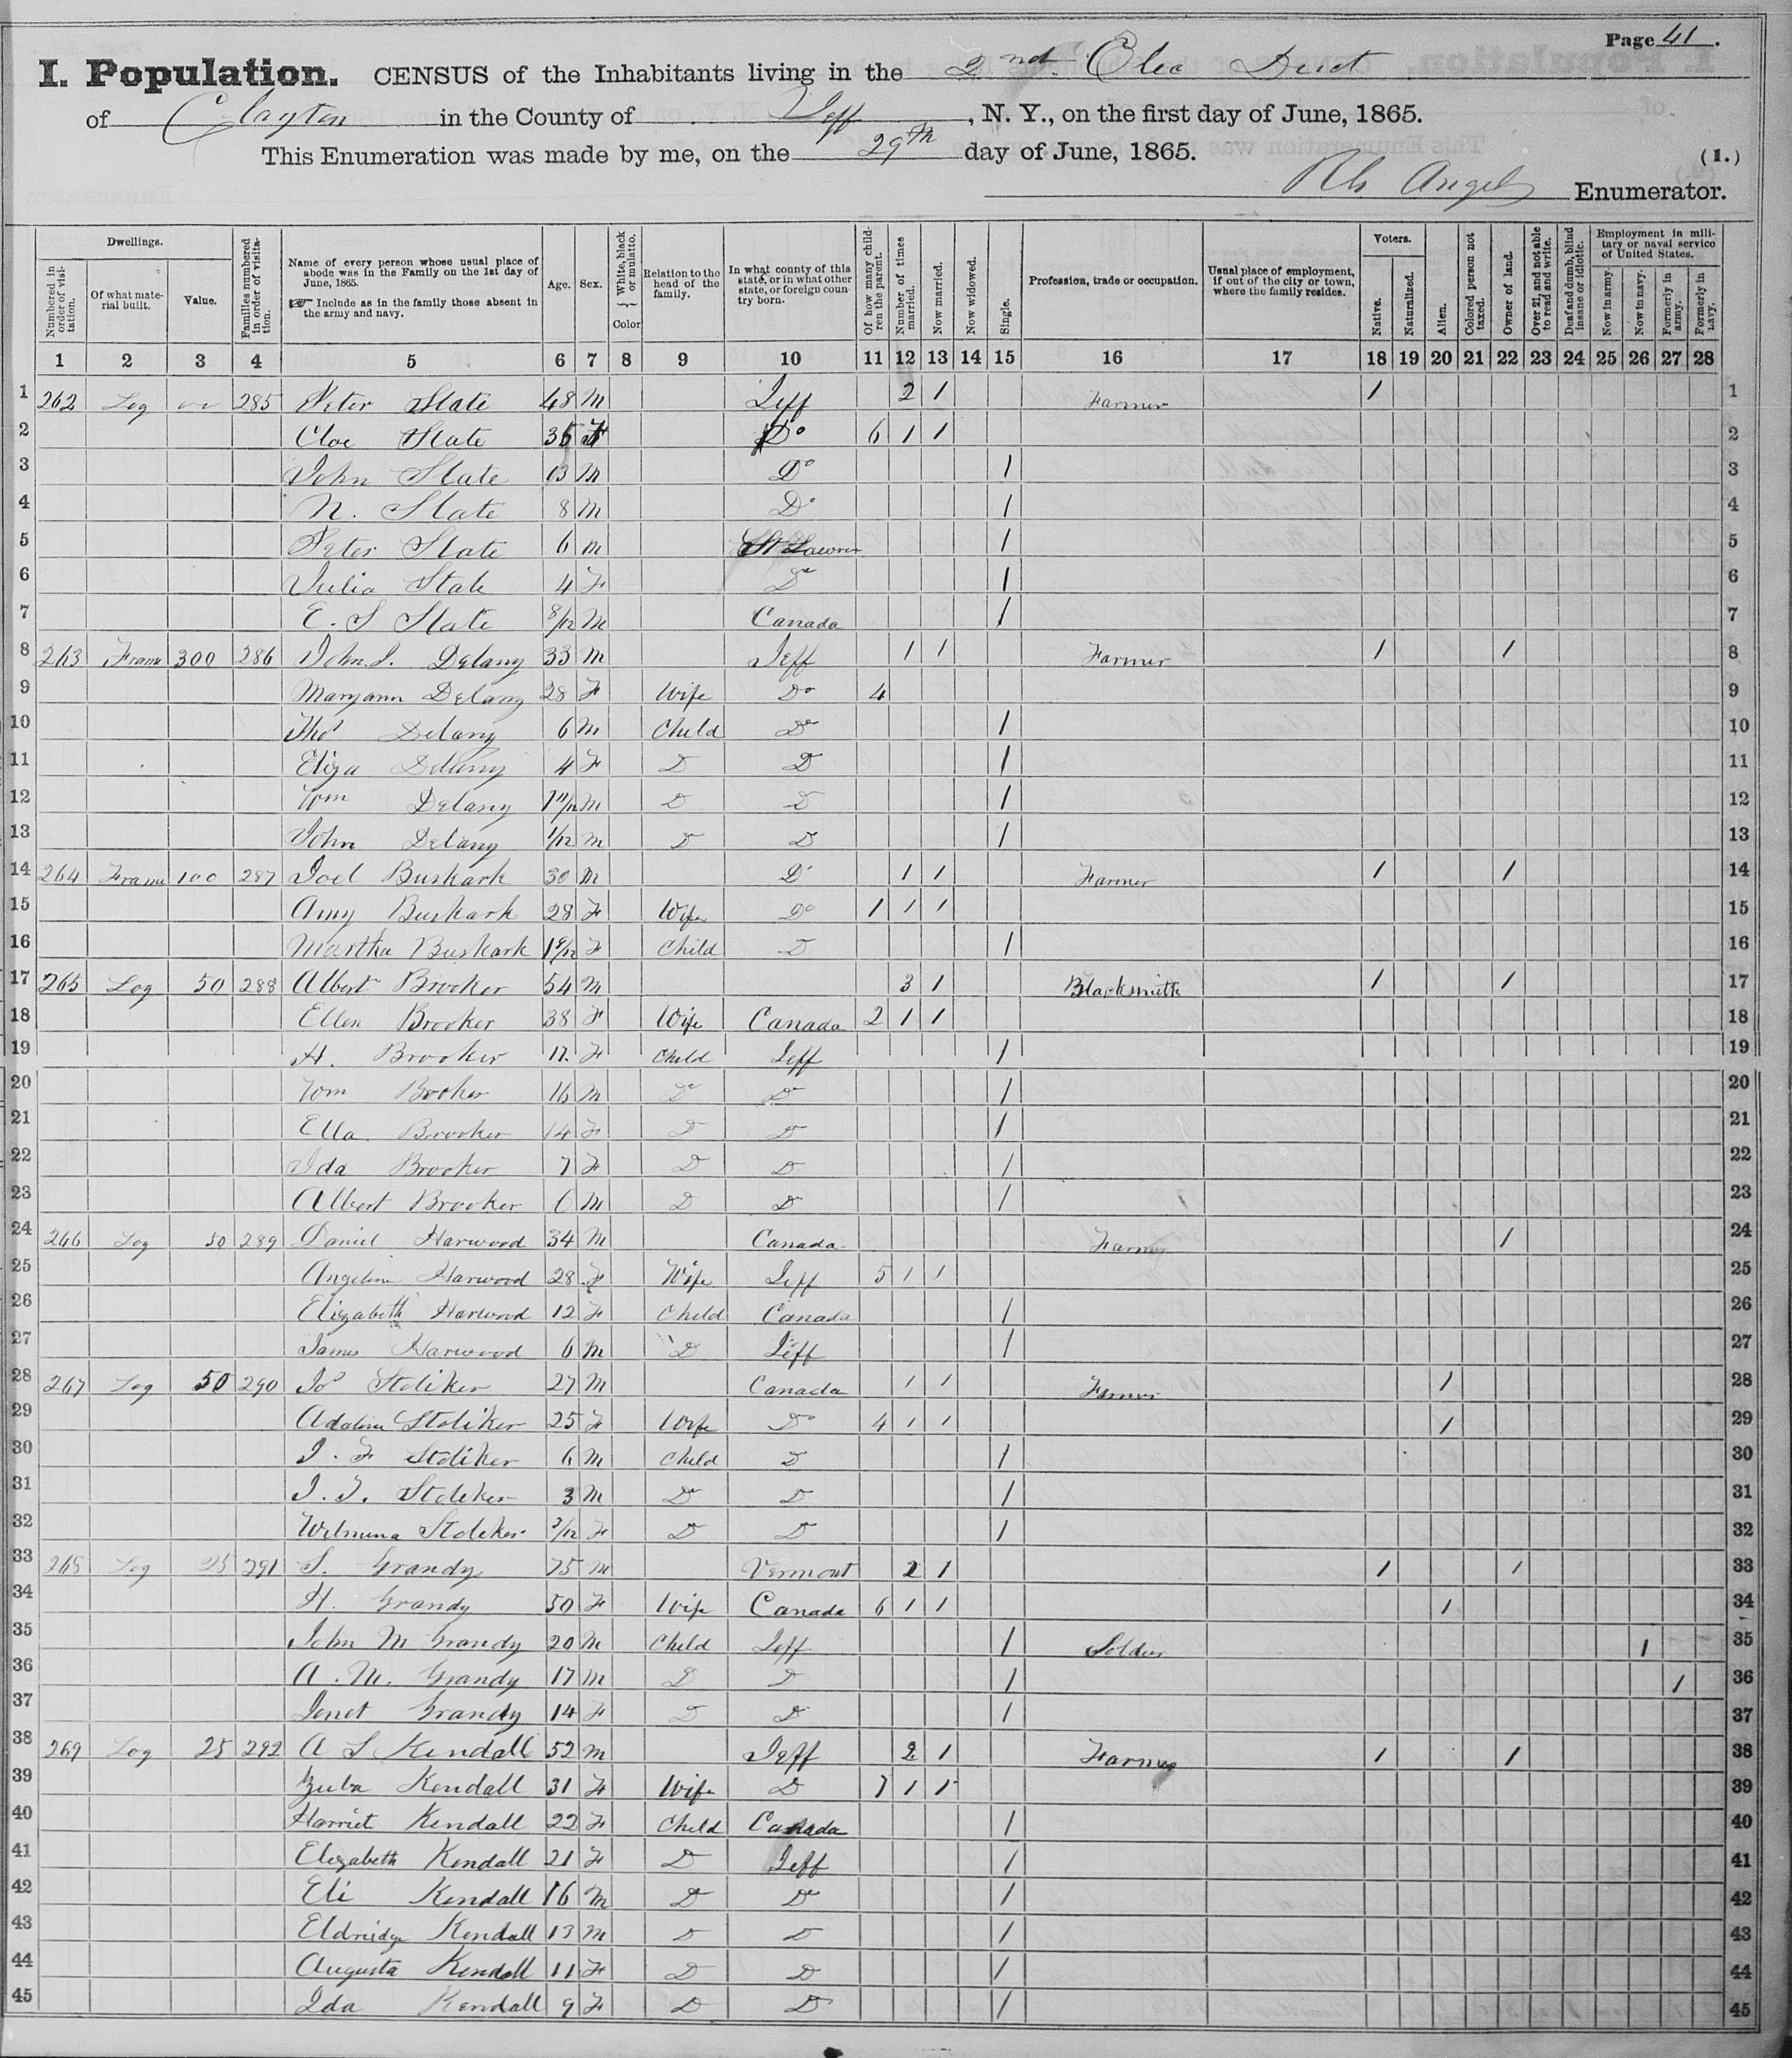 Page 41.
I. Population. CENSUS of the Inhabitants living in the 2nd. Elec Dist
of Clayton in the County of Jeff, N. Y., on the first day of June, 1865.
This Enumeration was made by me, on the 29th day of June, 1865.
(1.)
Angel Enumerator.
Dwellings.
Numbered in order of visitation.
Of what material built.
Value.
Families numbered in order of visitation.
Name of every person whose usual place of abode was in the Family on the 1st day of June, 1865.
☞ Include as in the family those absent in the army and navy.
Age.
Sex.
White, black or mulatto.
Color
Relation to the head of the family.
In what county of this state, or in what other state, or foreign country born.
Of how many children the parent.
Number of times married.
Now married.
Now widowed.
Single.
Profession, trade or occupation.
Usual place of employment, if out of the city or town, where the family resides.
Voters.
Native.
Naturalized.
Alien.
Colored person not taxed.
Owner of land.
Over 21, and not able to read and write.
Deaf and dumb, blind insane or idiotic.
Employment in military or naval service of United States.
Now in army.
Now in navy.
Formerly in army.
Formerly in navy.
1 2 3 4 5 6 7 8 9 10 11 12 13 14 15 16 17 18 19 20 21 22 23 24 25 26 27 28
1 262 Log 285 Peter Slate 48 M Jeff 2 1 Farmer 1 1
2 Cloe Slate 36 F Do 6 1 1 2
3 John Slate 13 M Do 1 3
4 N. Slate 8 M Do 1 4
5 Peter Slate 6 M St Lawren 1 5
6 Julia Slate 4 F Do 1 6
7 E. S Slate 8/12 M Canada 1 7
8 263 Frame 300 286 John. J. Delany 33 M Jeff 1 1 Farmer 1 1 8
9 Maryann Delany 28 F Wife Do 4 9
10 Thos Delany 6 M Child Do 1 10
11 Eliza Delany 4 F D D 1 11
12 Wm Delany 1 11/12 M D D 1 12
13 John Delany 1/12 M D D 1 13
14 264 Frame 100 287 Joel Buskark 30 M D 1 1 Farmer 1 1 14
15 Amy Buskark 28 F Wife Do 1 1 1 15
16 Martha Buskark 1 8/12 F Child D 1 16
17 265 Log 50 288 Albert Brooker 54 M 3 1 Blacksmith 1 1 17
18 Ellen Brooker 38 F Wife Canada 2 1 1 18
19 H. Brooker 17. F Child Jeff 1 19
20 Wm Brooker 16 M Do D 1 20
21 Ella Brooker 14 F D D 1 21
22 Ida Brooker 7 F D D 1 22
23 Albert Brooker 6 M D D 1 23
24 266 Log 50 289 Daniel Harwood 34 M Canada Farmer 1 24
25 Angeline Harwood 28 F Wife Jeff 5 1 1 25
26 Elizabeth Harwood 12 F Child Canada 1 26
27 James Harwood 6 M D Jeff 1 27
28 267 Log 50 290 Jos Stoliker 27 M Canada 1 1 Farmer 1 28
29 Adaline Stoliker 25 F Wife Do 4 1 1 1 29
30 J. F Stoliker 6 M Child D 1 30
31 J. J. Stoliker 3 M D D 1 31
32 Wilmina Stoliker 3/12 F D D 1 32
33 268 Log 25 291 S. Grandy 75 M Vermont 2 1 1 1 33
34 H. Grandy 50 F Wife Canada 6 1 1 1 34
35 John M Grandy 20 M Child Jeff 1 Soldier 1 35
36 A. M. Grandy 17 M D D 1 1 36
37 Jenet Grandy 14 F D D 1 37
38 269 Log 25 292 A S Kendall 52 M Jeff 2 1 Farmer 1 1 38
39 Zuba Kendall 31 F Wife D 7 1 1 39
40 Harriet Kendall 22 F Child Canada 1 40
41 Elizabeth Kendall 21 F D Jeff 1 41
42 Eli Kendall 16 M D Do 1 42
43 Eldridge Kendall 13 M D D 1 43
44 Augusta Kendall 11 F D D 1 44
45 Ida Kendall 9 F D D 1 45